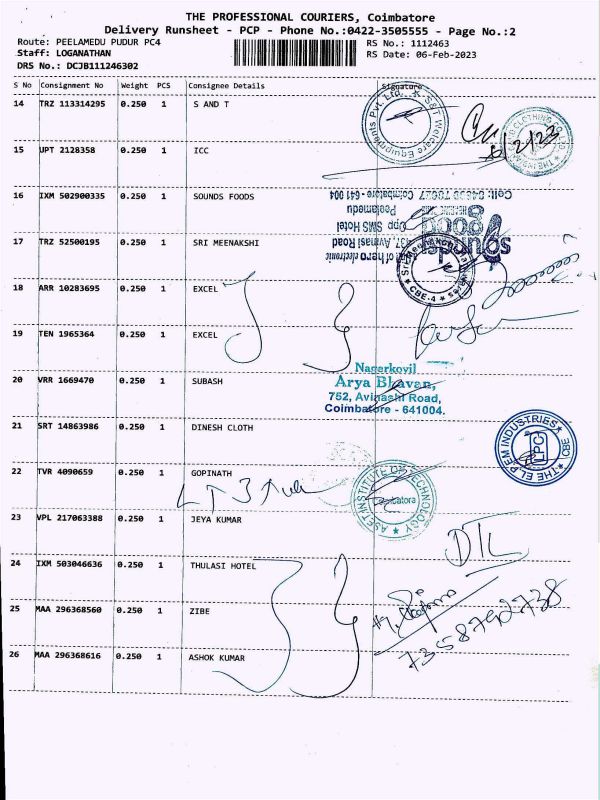 THE PROFESSIONAL COURIERS, Coimbatore
Delivery Runsheet - PCP - Phone No.:0422-3505555 - Page No.:2
Route: PEELAMEDU PUDUR PC4
RS No.: 1112463
Staff: LOGANATHAN
RS Date: 06-Feb-2023
DRS No.: DCJB111246302
S No Consignment No Weight PCS Consignee Details Signature
14 TRZ 113314295 0.250 1 S AND T
S&T Welcare Equipments Pvt. Ltd.
8/2/23
15 UPT 2128358 0.250 1 ICC
16 IXM 502900335 0.250 1 SOUNDS FOODS
Opp SMS Hotel
Peelamedu
17 TRZ 52500195 0.250 1 SRI MEENAKSHI
CBE-4
18 ARR 10283695 0.250 1 EXCEL
19 TEN 1965364 0.250 1 EXCEL
20 VRR 1669470 0.250 1 SUBASH
Nagerkovil
Arya Bhavan,
752, Avinashi Road,
Coimbatore - 641004.
21 SRT 14863986 0.250 1 DINESH CLOTH
THE EL PEM INDUSTRIES CBE
22 TVR 4090659 0.250 1 GOPINATH
INSTITUTE OF TECHNOLOGY
Coimbatore
23 VPL 217063388 0.250 1 JEYA KUMAR
24 IXM 503046636 0.250 1 THULASI HOTEL
25 MAA 296368560 0.250 1 ZIBE
26 MAA 296368616 0.250 1 ASHOK KUMAR